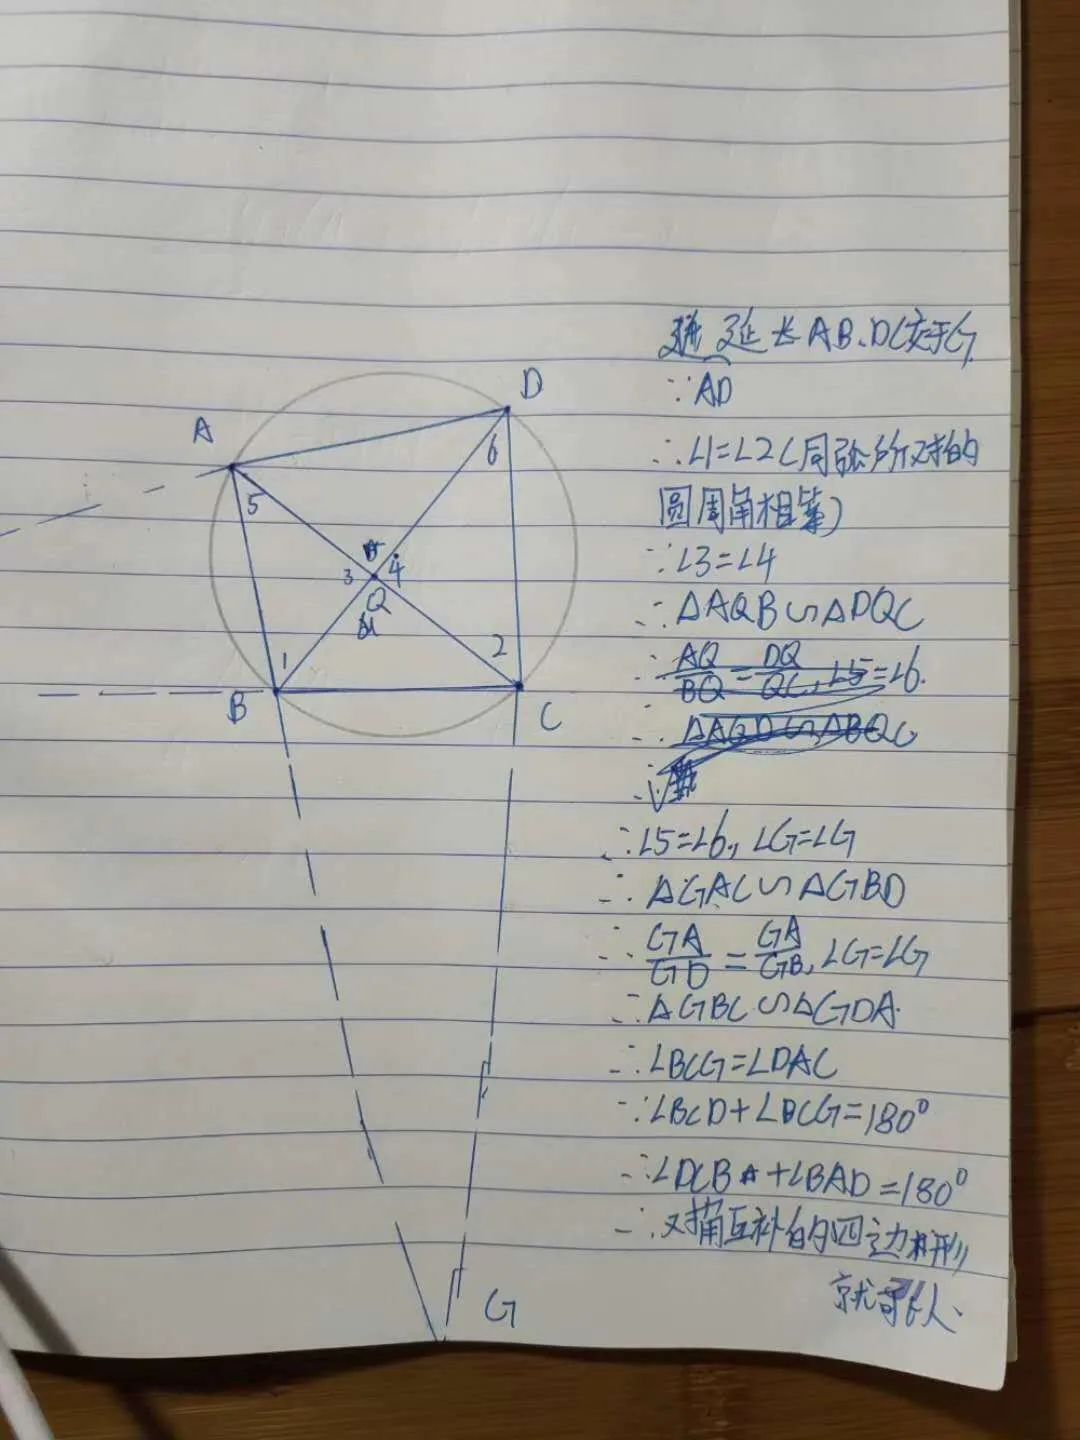 D
A
6
5
3
4
Q
1
2
B
C
G
延长AB、DC交于G
∵AD
∴∠1=∠2(同弧所对的
圆周角相等)
∵∠3=∠4
∴△AQB∽△DQC
∴AQ/BQ=DQ/QC,∠5=∠6.
∴△AQD∽△BQC
∵∠5=∠6,∠G=∠G
∴△GAC∽△GBD
∴GA/GD=GA/GB,∠G=∠G
∴△GBC∽△GDA.
∴∠BCG=∠DAC
∵∠BCD+∠BCG=180°
∴∠DCB+∠BAD=180°
∴对角互补的四边形